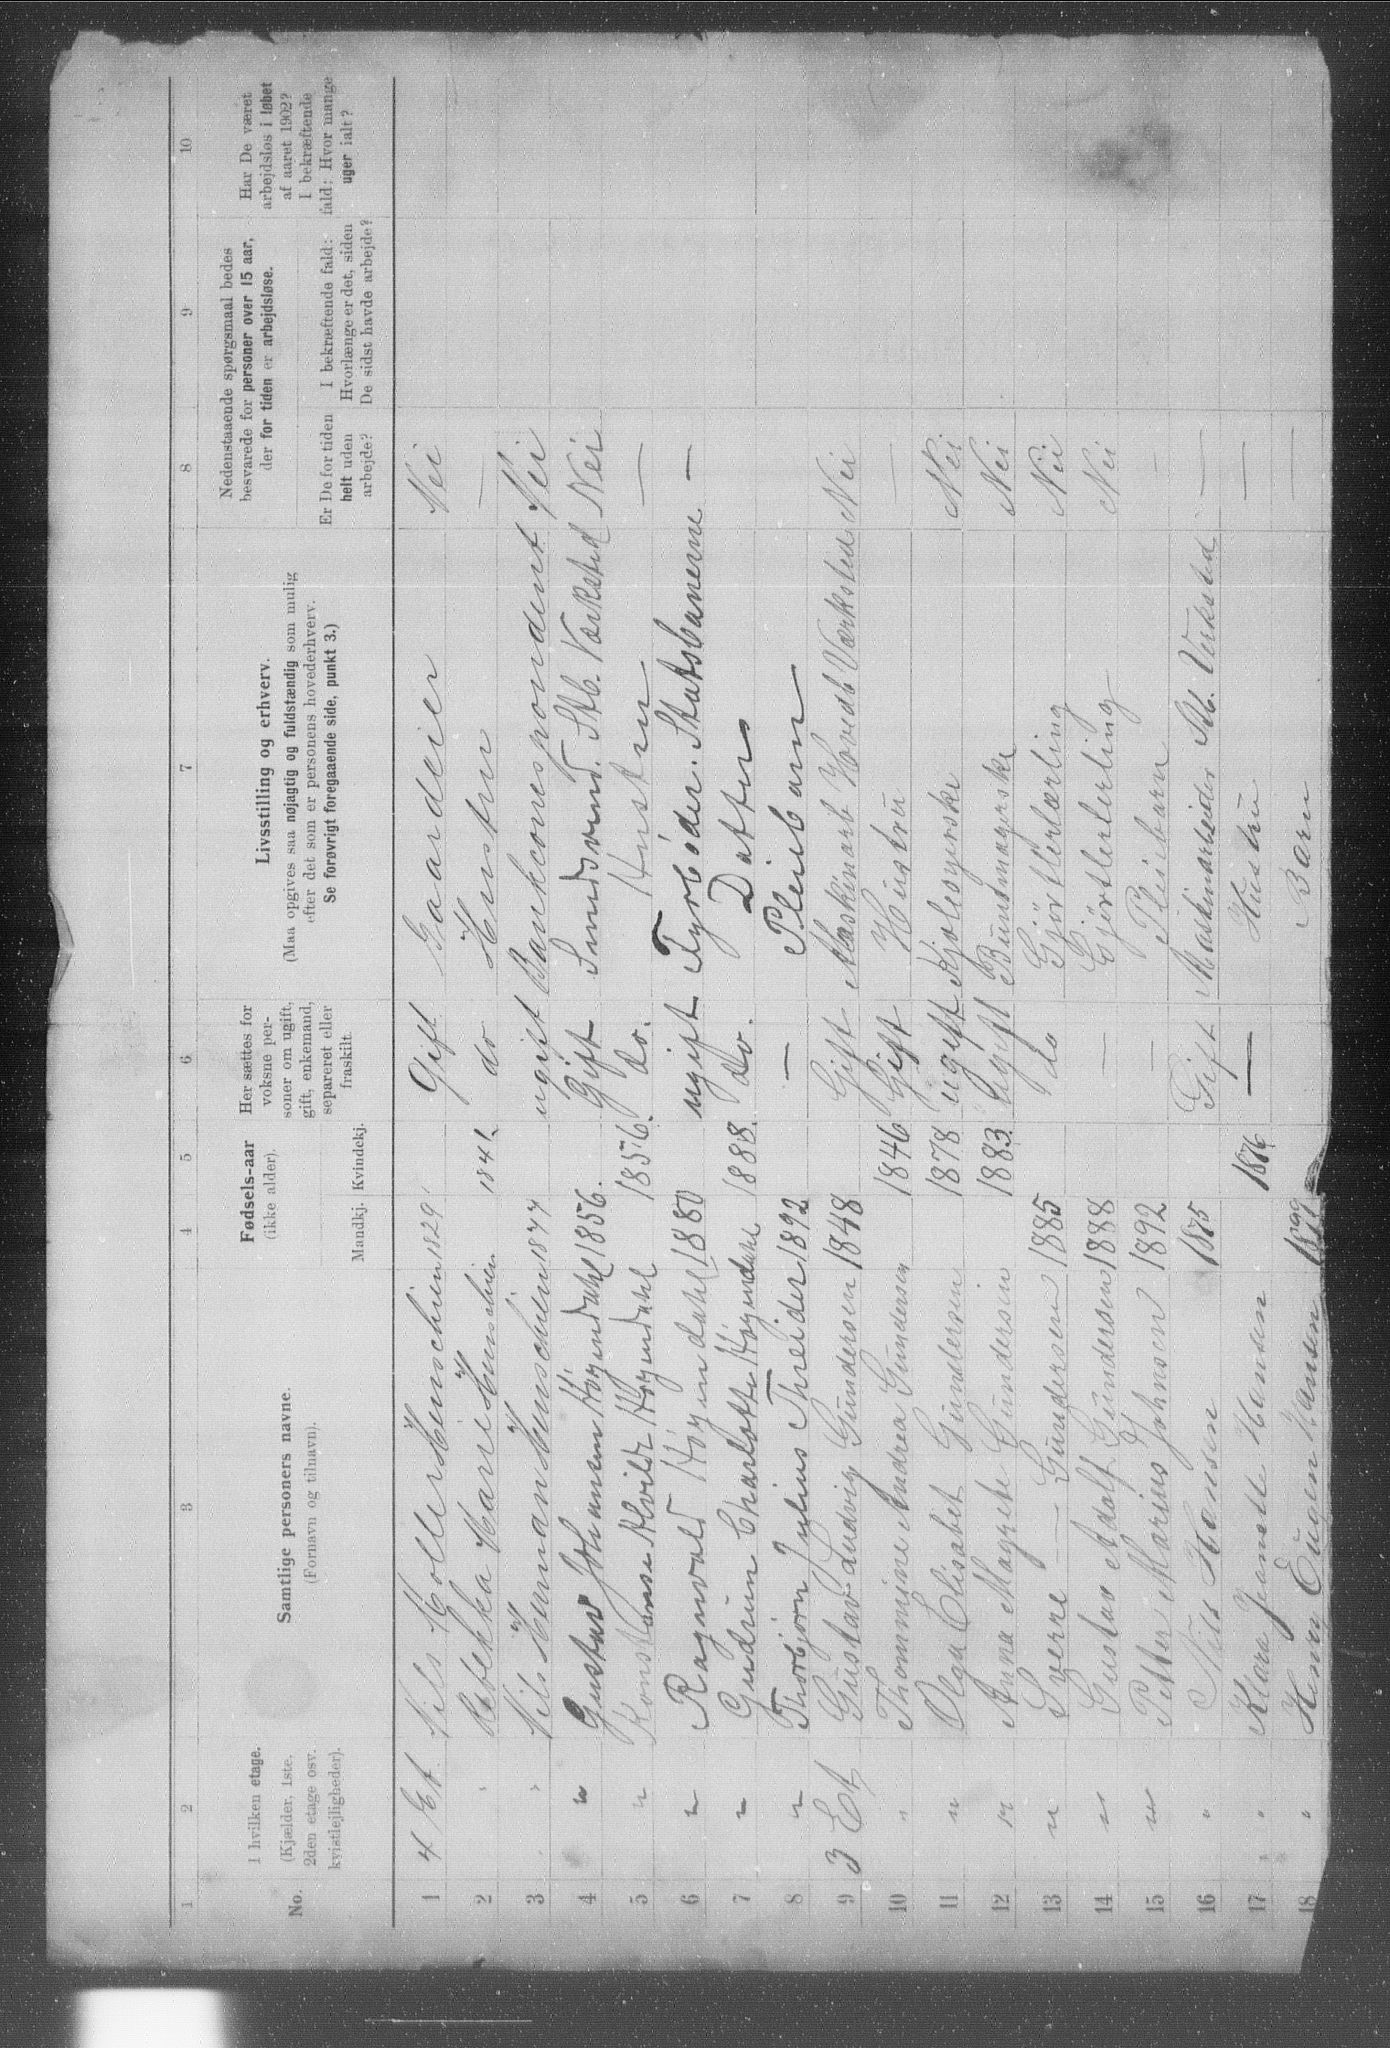 1 2 3 4 5 6 7 8 9 10
No.
I hvilken etage.
(Kjælder, 1ste,
2den etage osv.
kvistlejligheder).
Samtlige personers navne.
(Fornavn og tilnavn).
Fødsels-aar
(ikke alder).
Mandkj. Kvindekj.
Her sættes for
voksne per-
soner om ugift,
gift, enkemand,
separeret eller
fraskilt.
Livsstilling og erhverv.
(Maa opgives saa nøjagtig og fuldstændig som mulig
efter det som er personens hovederhverv.
Se forøvrigt foregaaende side, punkt 3.)
Nedenstaaende spørgsmaal bedes
besvarede for personer over 15 aar,
der for tiden er arbejdsløse.
Er De for tiden
helt uden
arbejde?
I bekræftende fald:
Hvorlænge er det, siden
De sidst havde arbejde?
Har De været
arbejdsløs i løbet
af aaret 1902?
I bekræftende
fald: Hvor mange
uger ialt?
1 4 Et. Nils 1829 Gift Gaardeier Nei
2 " Rebekka Marie 1842 do Hustru —
3 " Nils Herman 1877 ugift Bankcorrespondent Nei
4 " Gustav Johannes Högendahl 1856. Gift Smedsvend. Stb. Værksted Nei
5 " Högendahl 1856. do. Hustru —
6 " Ragnvald Högendahl 1880 ugift Fyrböder. Statsbanerne —
7 " Gudrun Charlotte Högendahl 1888. do. Datter
8 " Thorbjørn Julius 1892 — Pleiebarn —
9 3 Et Gustav Ludvig Gundersen 1848 Gift Maskinarb Hovedb Værksted Nei
10 " Thommine Andrea Gundersen 1846 Gift Hustru —
11 " Olga Elisabet Gundersen 1878 ugift Kjolesyerske Nei
12 " Anna Magrete Gundersen 1883 Ugift Buntmagerske Nei
13 " Sverre — Gundersen 1885 do Gjörtlerlærling Nei
14 " Gustav Adolf Gundersen 1888 — Gjörtlerlerling Nei
15 " Petter Marius Johnsen 1892 — Pleiebarn —
16 " Nils Hansen 1875 Gift Maskinarbeider Stb. Verksted —
17 " Klara Jeanette Hansen 1876 — Hustru —
18 " Henry Eugen Hansen 1899 Barn —